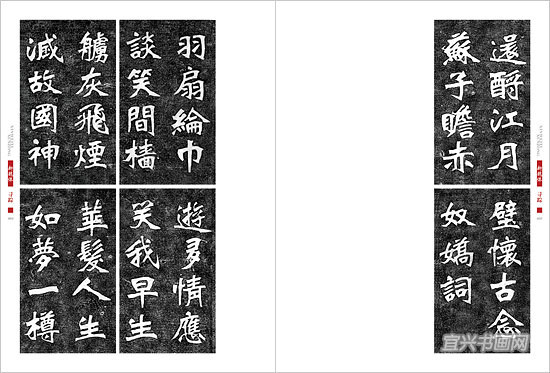 羽扇綸巾
談笑間檣
艣灰飛煙
滅故國神
遊多情應
笑我早生
華髮人生
如夢一樽
還酹江月
蘇子瞻赤
壁懷古念
奴嬌詞
宜兴书画网